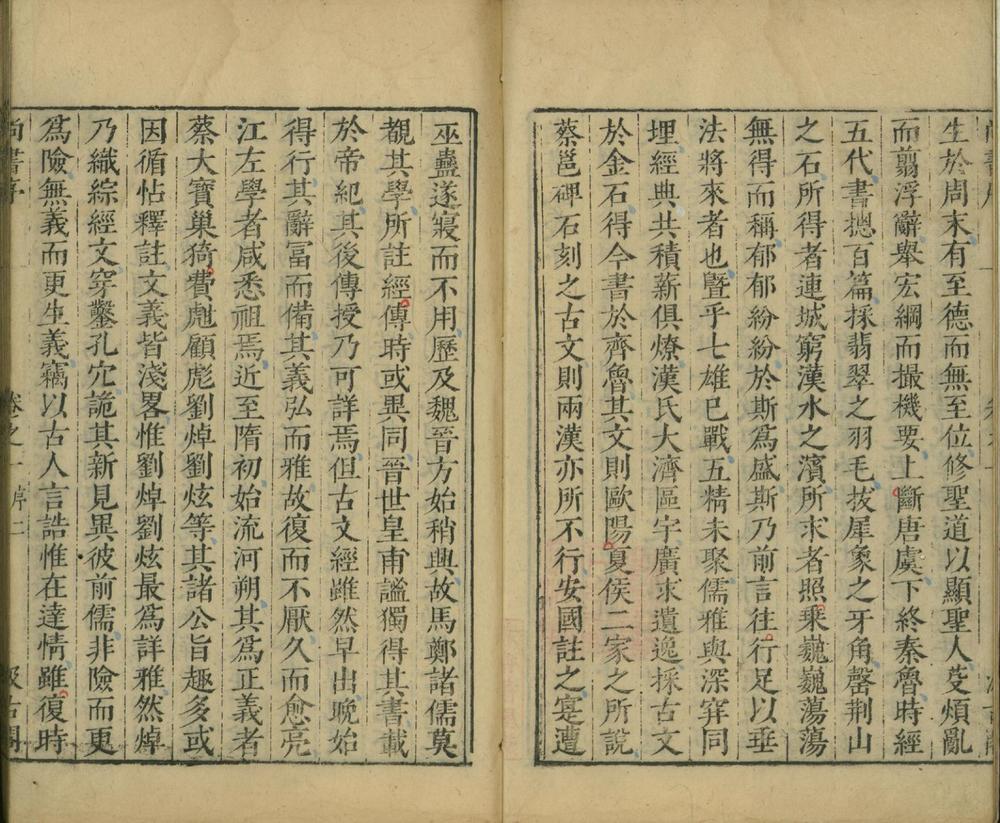 生於周末有至德而無至位修聖道以顯聖人芟煩亂
而翦浮辭舉宏綱而撮機要上斷唐虞下終秦魯時經
五代書揔百篇採翡翠之羽毛拔犀象之牙角罄荆山
之石所得者連城窮漢水之濱所求者照乘巍巍蕩蕩
無得而稱郁郁紛紛於斯爲盛斯乃前言往行足以垂
法將來者也曁乎七雄已戰五精未聚儒雅與深穽同
埋經典共積薪俱燎漢氏大濟區宇廣求遺逸採古文
於金石得今書於齊魯其文則歐陽夏侯二家之所說
蔡邕碑石刻之古文則兩漢亦所不行安國註之寔遭
巫蠱遂寢而不用歷及魏晉方始稍興故馬鄭諸儒莫
覩其學所註經傳時或異同晉世皇甫謐獨得其書載
於帝紀其後傳授乃可詳焉但古文經雖然早出晚始
得行其辭富而備其義弘而雅故復而不厭久而愈亮
江左學者咸悉祖焉近至隋初始流河朔其爲正義者
蔡大寶巢猗費甝顧彪劉焯劉炫等其諸公旨趣多或
因循帖釋註文義皆淺畧惟劉焯劉炫最爲詳雅然焯
乃織綜經文穿鑿孔穴詭其新見異彼前儒非險而更
爲險無義而更生義竊以古人言誥惟在達情雖復時
尚書序 卷之一 序二 汲古閣